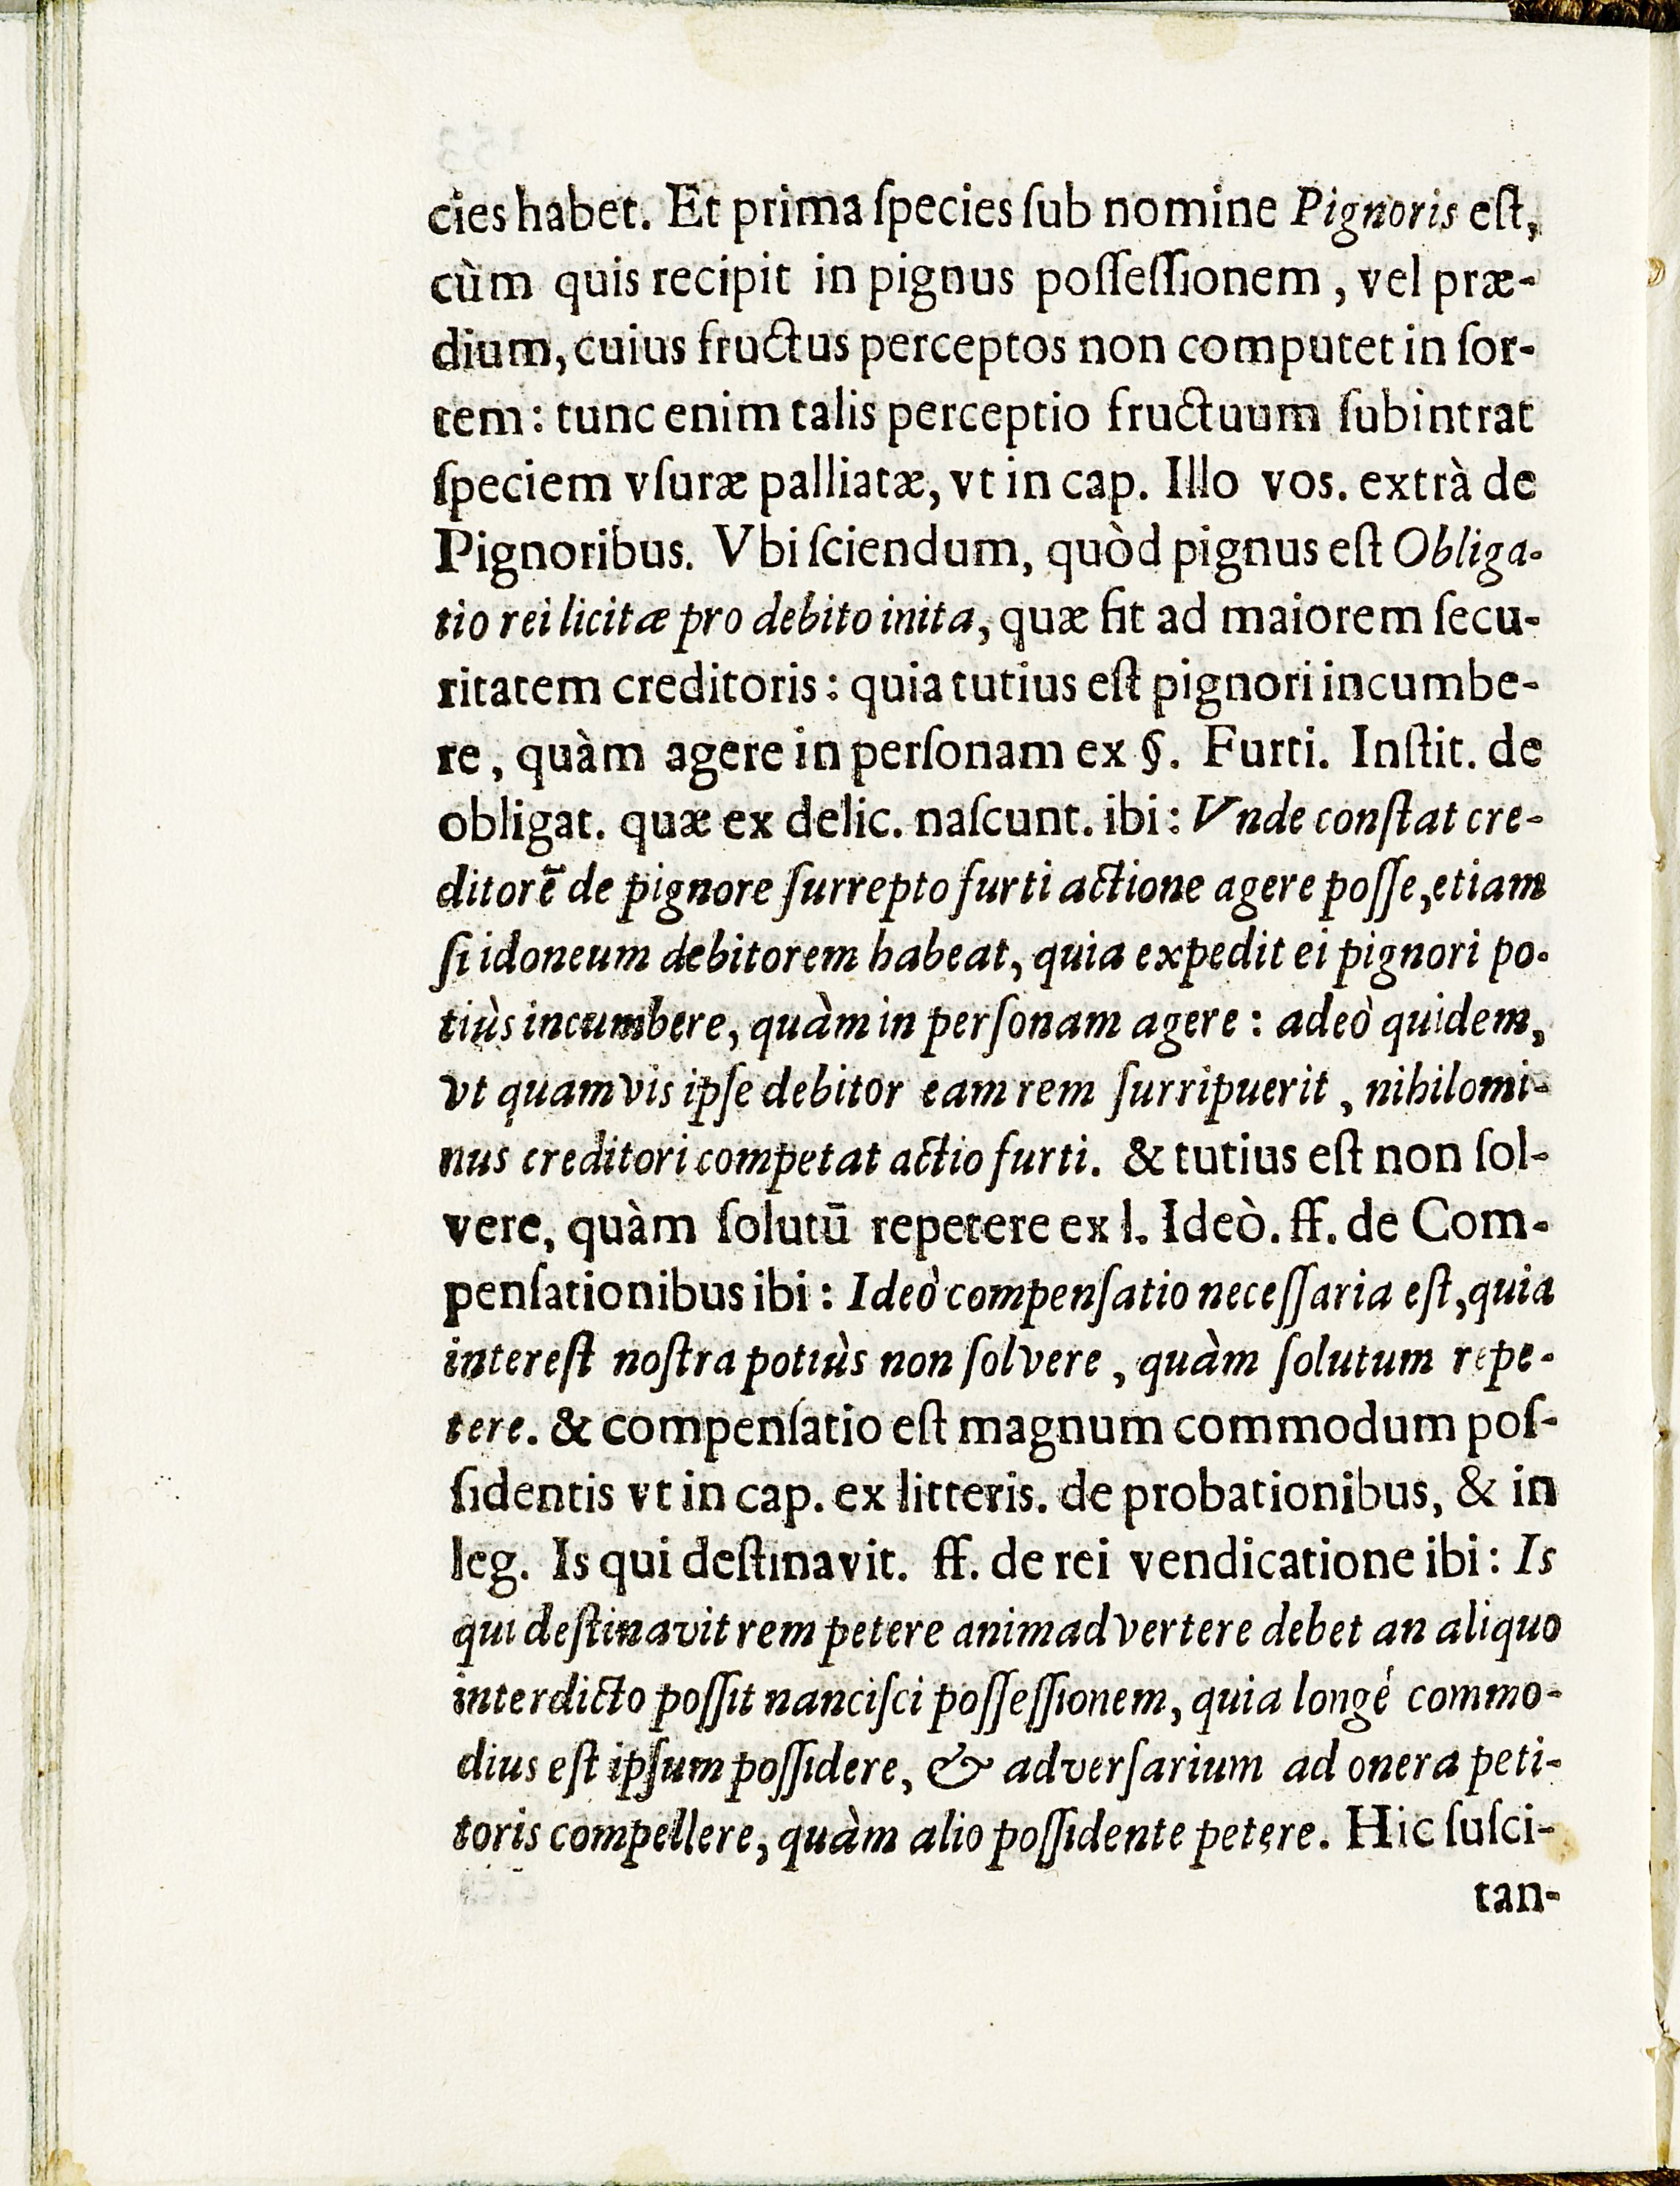 cies habet. Et prima ſpecies ſub nomine Pignoris eſt,
cùm quis recipit in pignus poſſeſſionem, vel præ-
dium, cuius fructus perceptos non computet in ſor-
tem: tunc enim talis perceptio fructuum ſubintrat
ſpeciem vſuræ palliatæ, vt in cap. Illo vos. extrà de
Pignoribus. Vbi ſciendum, quòd pignus eſt Obliga-
tio rei licitæ pro debito inita, quæ fit ad maiorem ſecu-
ritatem creditoris: quia tutius eſt pignori incumbe-
re, quàm agere in perſonam ex §. Furti. Inſtit. de
obligat. quæ ex delic. naſcunt. ibi: Vnde conſtat cre-
ditorē de pignore ſurrepto furti actione agere poſſe, etiam
ſi idoneum debitorem habeat, quia expedit ei pignori po-
tiùs incumbere, quàm in perſonam agere: adeò quidem,
vt quamvis ipſe debitor eam rem ſurripuerit, nihilomi-
nus creditori competat actio furti. & tutius eſt non ſol-
vere, quàm ſolutū repetere ex l. Ideò. ff. de Com-
penſationibus ibi: Ideò compenſatio neceſſaria eſt, quia
intereſt noſtra potiùs non ſolvere, quàm ſolutum repe-
tere. & compenſatio eſt magnum commodum poſ-
ſidentis vt in cap. ex litteris. de probationibus, & in
leg. Is qui deſtinavit. ff. de rei vendicatione ibi: Is
qui deſtinavit rem petere animadvertere debet an aliquo
interdicto poſſit nanciſci poſſeſſionem, quia longé commo-
dius eſt ipſum poſſidere, & adverſarium ad onera peti-
toris compellere, quàm alio poſſidente petere. Hic ſuſci-
tan-